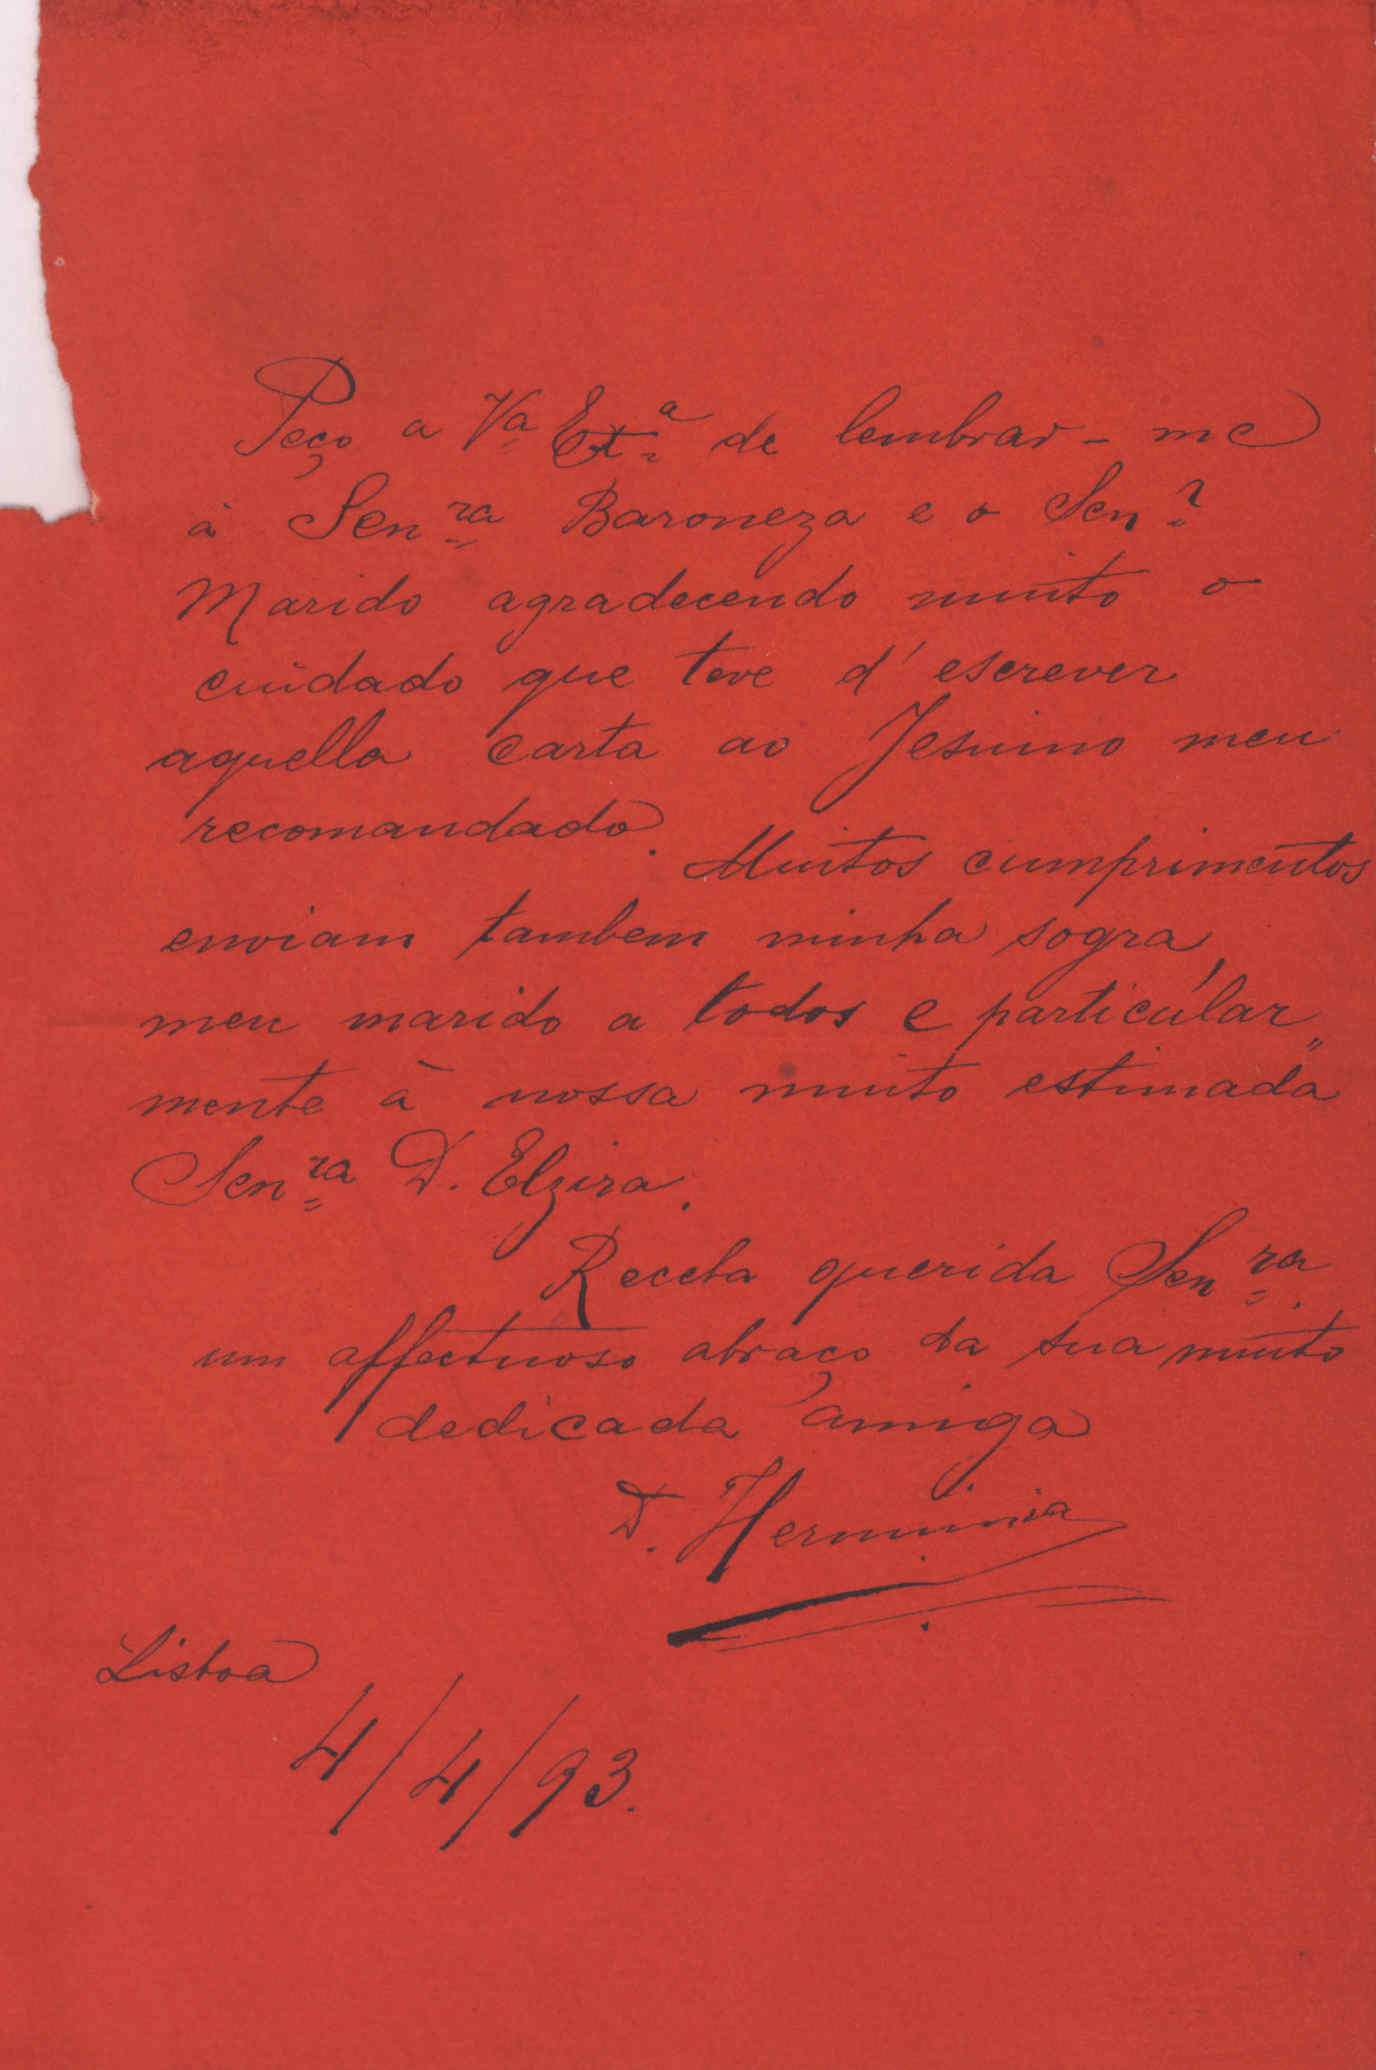 Peço a Vª Exª de lembrar-me
à Senra Baroneza e o Senr
Marido agradecendo muito o
cuidado que teve d'escrever
aquella carta ao Jesuino meu
recomandado. Muitos cumprimentos
enviam tambem minha sogra,
meu marido a todos e particular
mente à nossa muito estimada
Senra D. Elzira.
Receba querida Senra.
um affectuoso abraço da sua muito
dedicada amiga
D. Herminia
Lisboa
4/4/93.